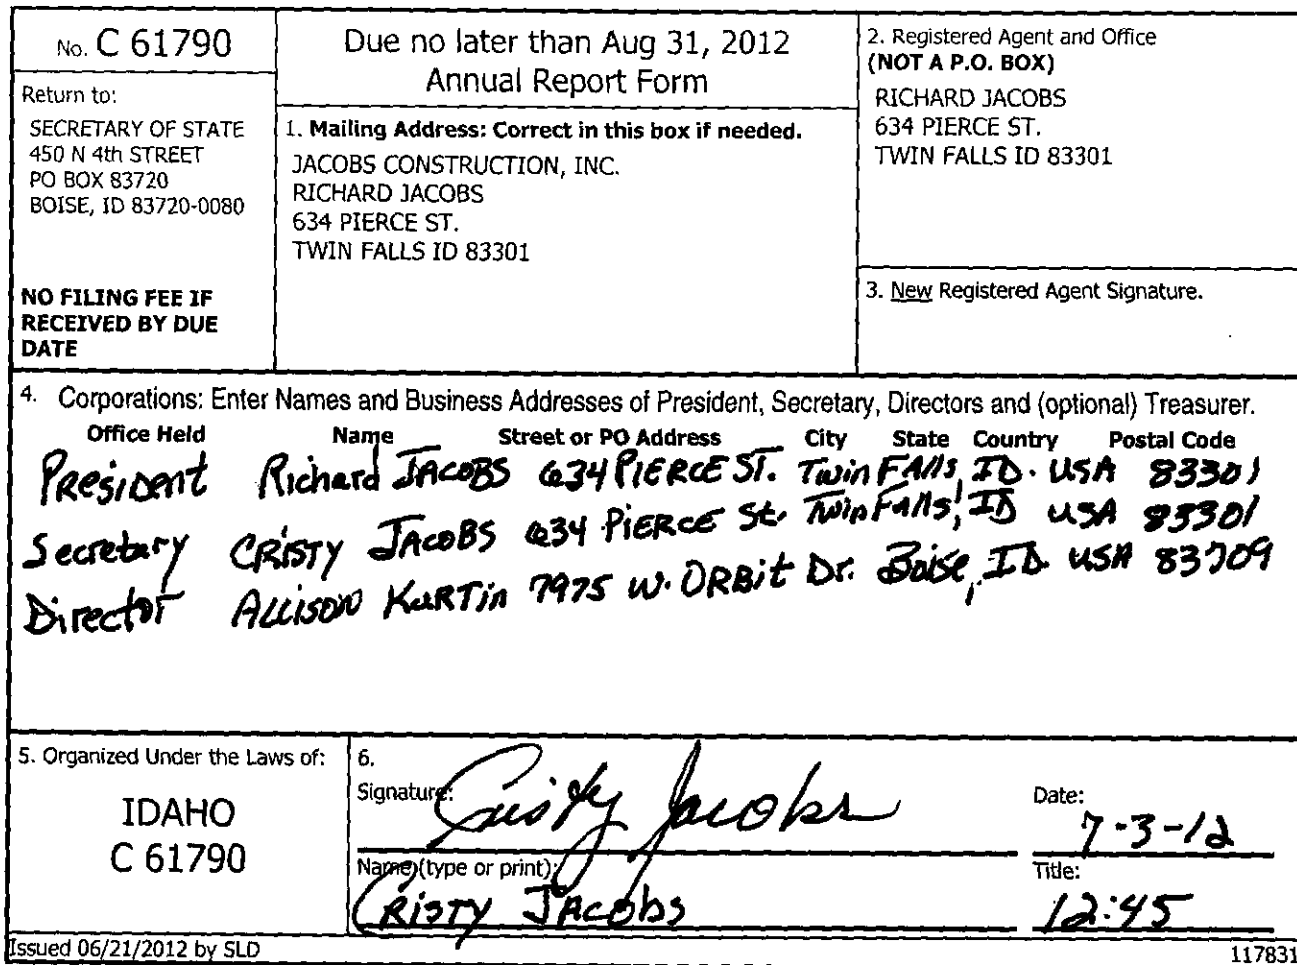 No. C 61790
Return to:
SECRETARY OF STATE
450 N 4th STREET
PO BOX 83720
BOISE, ID 83720-0080
NO FILING FEE IF
RECEIVED BY DUE
DATE
Due no later than Aug 31, 2012
Annual Report Form
1. Mailing Address: Correct in this box if needed.
JACOBS CONSTRUCTION, INC.
RICHARD JACOBS
634 PIERCE ST.
TWIN FALLS ID 83301
2. Registered Agent and Office
(NOT A P.O. BOX)
RICHARD JACOBS
634 PIERCE ST.
TWIN FALLS ID 83301
3. New Registered Agent Signature.
4. Corporations: Enter Names and Business Addresses of President, Secretary, Directors and (optional) Treasurer.
Office Held Name Street or PO Address City State Country Postal Code
PResiDent Richard JAcoBS 634 PIERCE ST. Twin FAlls, ID. USA 83301
Secretary CRiSTY JAcoBS 634 PiERCE St. Twin Falls, ID USA 83301
Director ALLISON KuRTin 7975 W. ORBit Dr. Boise, ID. USA 83709
5. Organized Under the Laws of:
IDAHO
C 61790
6.
Signature: Cristy Jacobs
Date: 7-3-12
Name (type or print): CRISTY JAcobs
Title: 12:45
Issued 06/21/2012 by SLD
117831